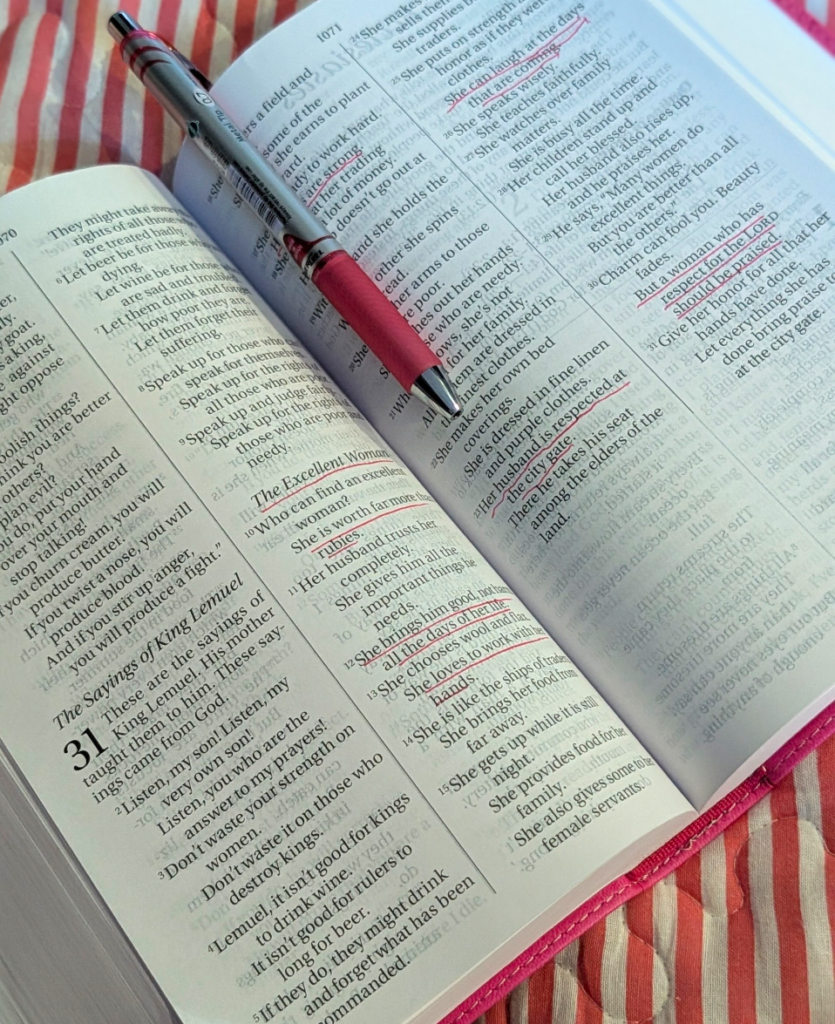 er,
ly
goat.
a king,
e against
ght oppose
oolish things?
hink you are better
others?
plan evil?
do, put your hand
over your mouth and
stop talking!
you churn cream, you will
produce butter.
If you twist a nose, you will
produce blood.
And if you stir up anger,
you will produce a fight.”
The Sayings of King Lemuel
31 These are the sayings of
King Lemuel. His mother
taught them to him. These say-
ings came from God.
2 Listen, my son! Listen, my
very own son!
Listen, you who are the
answer to my prayers!
3 Don’t waste your strength on
women.
Don’t waste it on those who
destroy kings.
4 Lemuel, it isn’t good for kings
to drink wine.
It isn’t good for rulers to
long for beer.
5 If they do, they might drink
and forget what has been
commanded.
They might take away
rights of all those
are treated badly.
6 Let beer be for those who
dying.
Let wine be for those
are sad and troubled
7 Let them drink and forget
how poor they are.
Let them forget their
suffering.
8 Speak up for those who
speak for themselves
Speak up for the rights
all those who are poor
9 Speak up and judge fairly
Speak up for the rights
those who are poor and
needy.
The Excellent Woman
10 Who can find an excellent
woman?
She is worth far more than
rubies.
11 Her husband trusts her
completely.
She gives him all the
important things he
needs.
12 She brings him good, not harm
all the days of her life.
13 She chooses wool and flax.
She loves to work with her
hands.
14 She is like the ships of traders.
She brings her food from
far away.
15 She gets up while it is still
night.
She provides food for her
family.
She also gives some to her
female servants.
1071
a field and
some of the
she earns to plant
ard.
ady to work hard.
are strong.
her trading
lot of money.
doesn’t go out at
and she holds the
other she spins
ead.
her arms to those
are poor.
hes out her hands
se who are needy.
ows, she’s not
for her family.
All are dressed in
the finest clothes.
22 She makes her own bed
coverings.
She is dressed in fine linen
and purple clothes.
23 Her husband is respected at
the city gate.
There he takes his seat
among the elders of the
land.
24 She makes
sells them
She supplies
traders.
25 She puts on strength
honor as if they were
clothes.
She can laugh at the days
that are coming.
26 She speaks wisely.
She teaches faithfully.
27 She watches over family
matters.
She is busy all the time.
28 Her children stand up and
call her blessed.
Her husband also rises up,
and he praises her.
29 He says, “Many women do
excellent things.
But you are better than all
the others.”
30 Charm can fool you. Beauty
fades.
But a woman who has
respect for the LORD
should be praised.
31 Give her honor for all that her
hands have done.
Let everything she has
done bring praise
at the city gate.